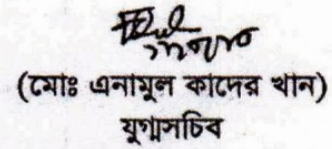 (মোঃ এনামুল কাদের খান)
যুগ্মসচিব